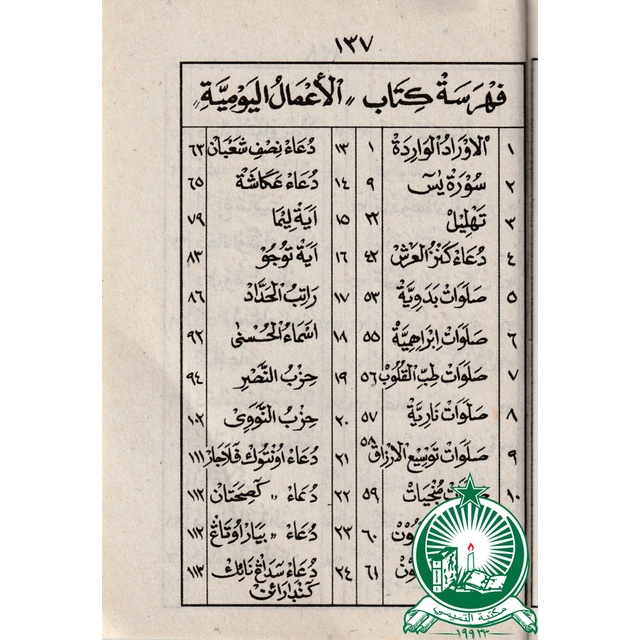 ١٣٧
فهرسة كتاب „الأعمال اليومية„
١ الاوراد الواردة ١
٢ سورة يس ٩
٣ تهليل ٢٢
٤ دعاء كنز العرش ٤٢
٥ صلوات بدوية ٥٣
٦ صلوات ابراهمية ٥٥
٧ صلوات طب القلوب ٥٦
٨ صلوات نارية ٥٧
٩ صلوات توسيع الارزاق ٥٨
١٠ منجيات ٥٩
٦٠
٦١
١٣ دعاء نصف شعبان ٦٢
١٤ دعاء عكاشة ٦٥
١٥ اية ليما ٧٩
١٦ اية توجو ٨٣
١٧ راتب الحداد ٨٦
١٨ اسماء الحسنى ٩٢
١٩ حزب النصر ٩٤
٢٠ حزب النووى ١٠٢
٢١ دعاء اونتوك فلاجار ١١١
٢٢ دعاء „ كصحتان ١١٢
٢٣ دعاء „ بيار اوتاڠ ١١٢
٢٤ دعاء سداڠ نائك ١١٣
كندارائن
مكتبة التميمي